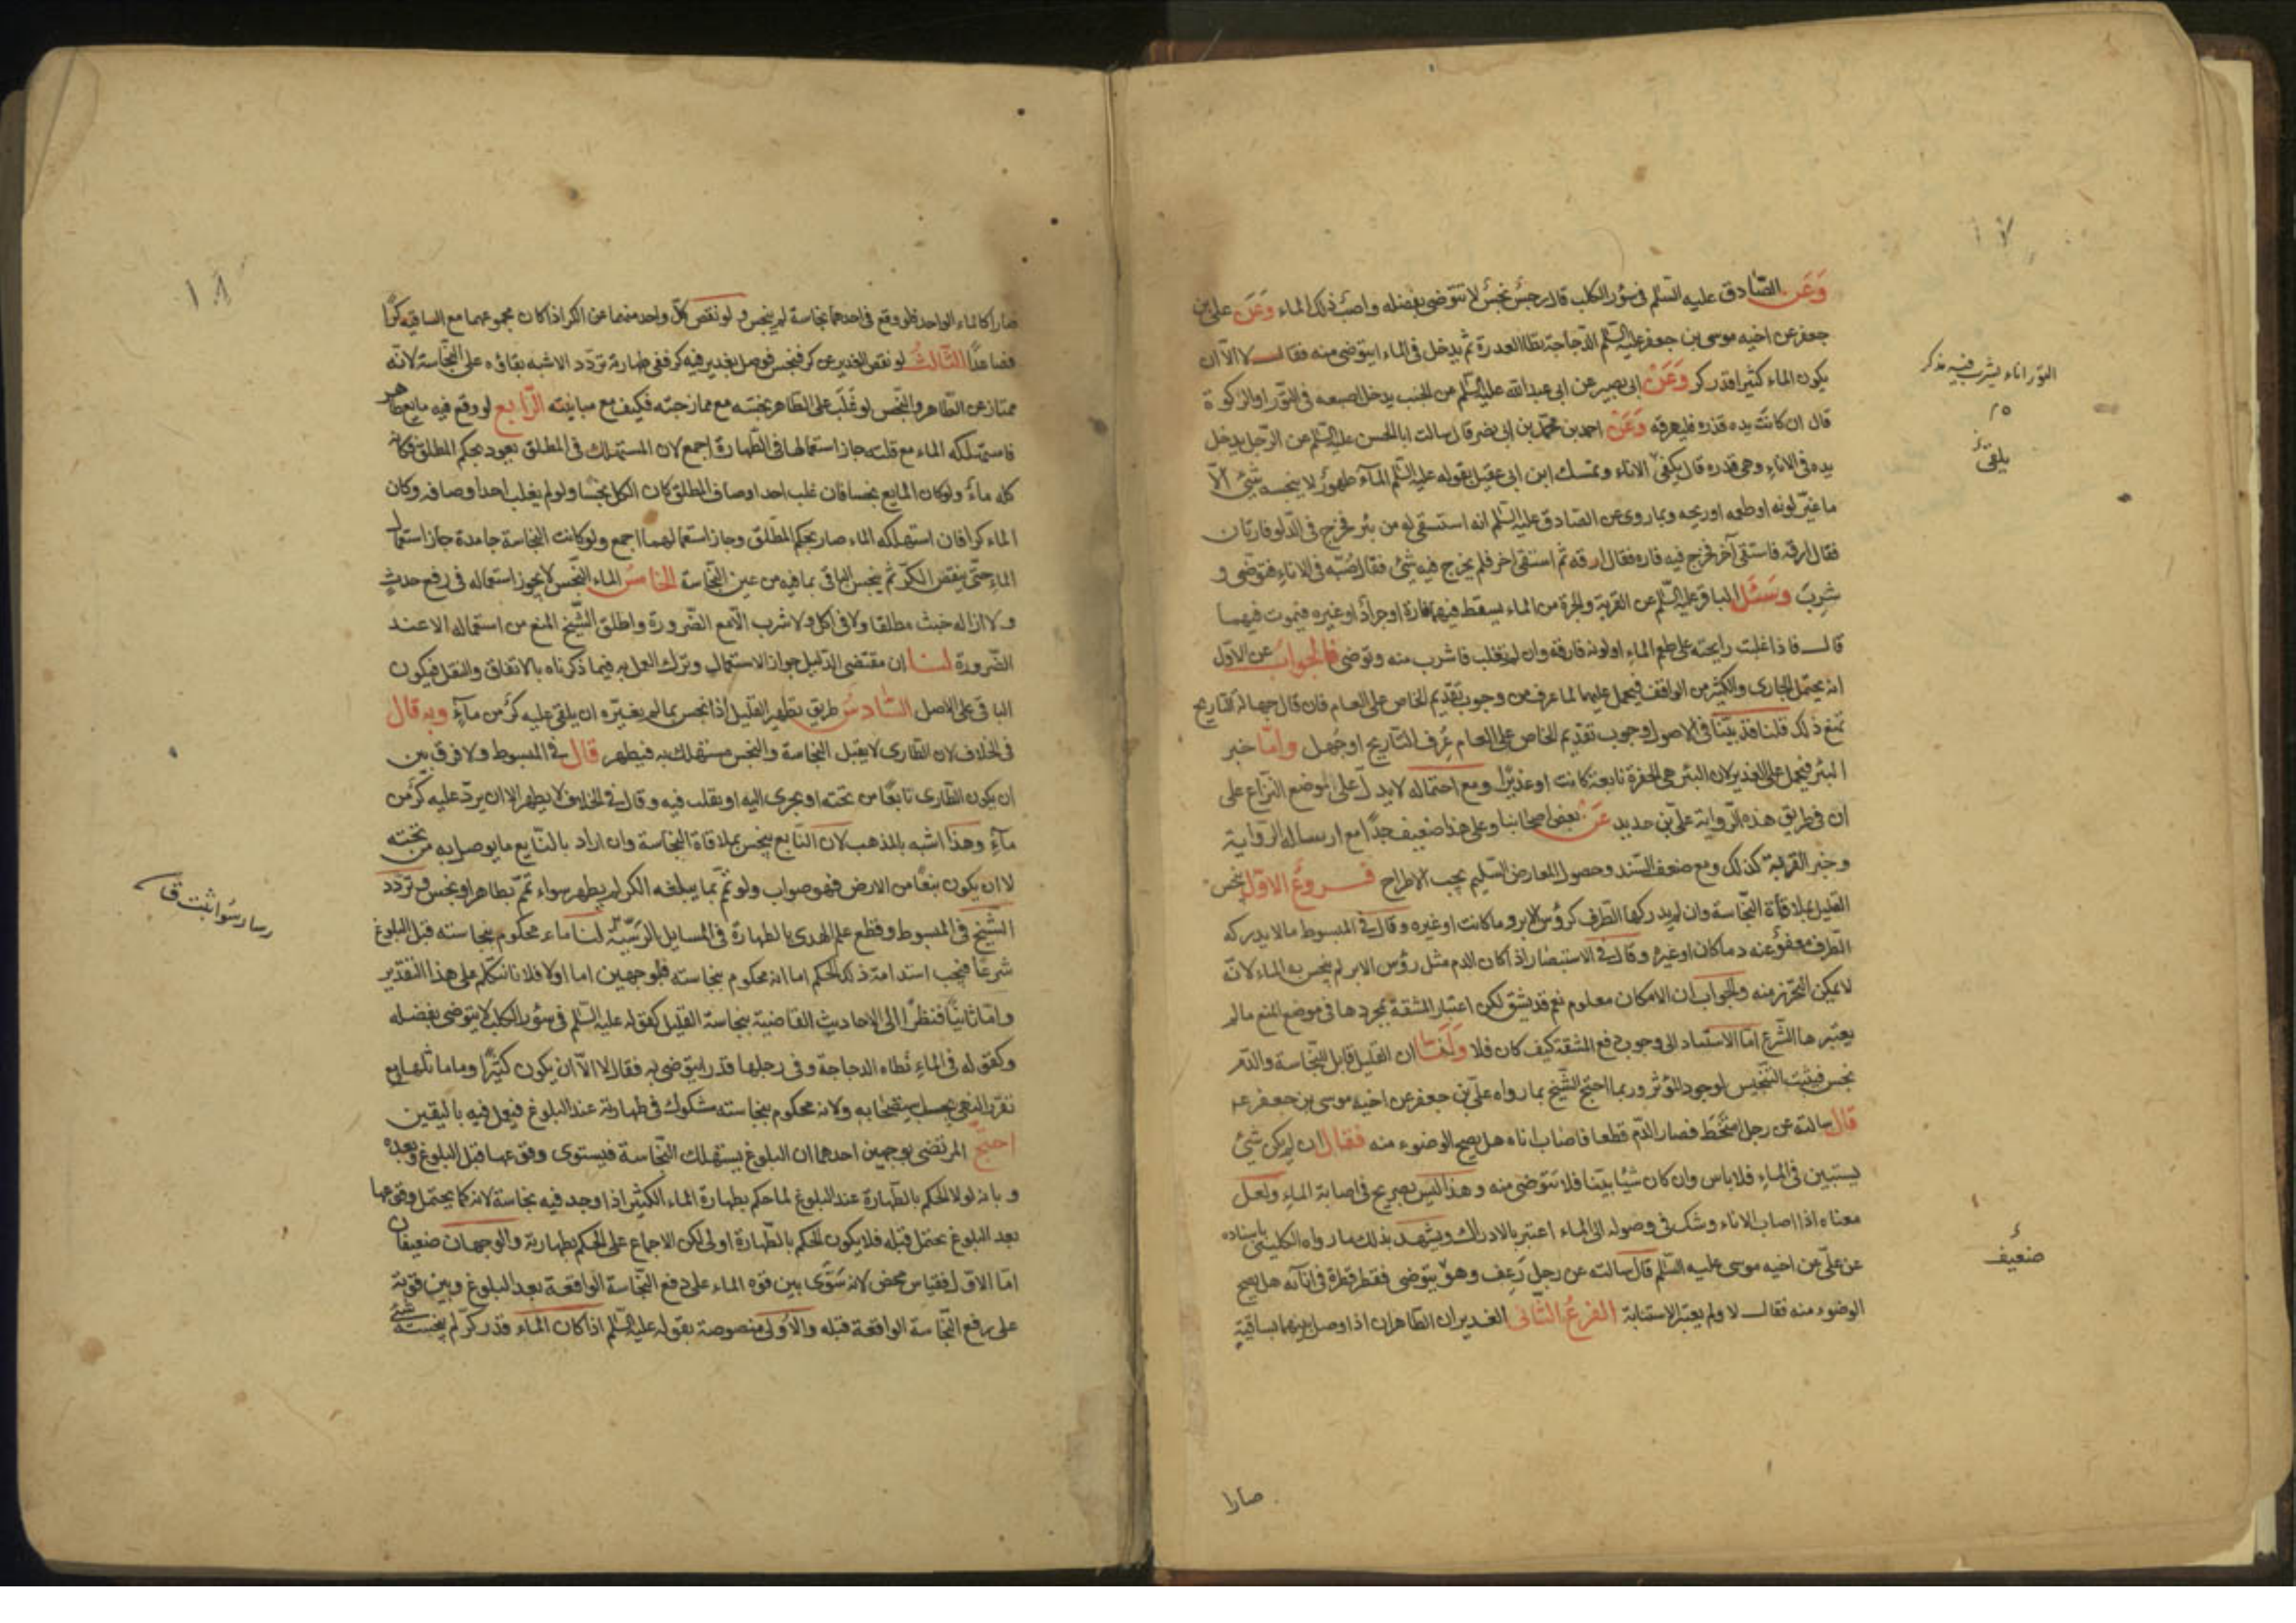 وَعَن الصّادق عليه السّلم فى سؤر الكلب قال رجسٌ نجسٌ لا تتوّضى بفضله واصبب ذلك الماء وَعَن على بن
جعفر عن اخيه موسى بن جعفر عليه السّلم الدّجاجة تطا العذرة ثم يدخل فى الماء ايتوضى منه فقال لا الّا ان
يكون الماء كثيرا قدر كر وَعَن ابى بصير عن ابى عبد الله عليه السّلم عن الجنب يدخل اصبعه فى التّور او الركوة
قال ان كانت يده قذره فليهرقه وَعَن احمد بن محمّد بن ابى نصر قال سالت ابا الحسن عليه السّلم عن الرّجل يدخل
يده فى الاناء وهى قذره قال يكفئ الاناء وتمسك ابن ابى عقيل بقوله عليه السّلم المآء طهورٌ لا ينجسه شئ الّا
ما غيّر لونه او طعمه او ريحه وبما روى عن الصّادق عليه السّلم انه استسقى له من بئر فخرج فى الدّلو فارتان
فقال ارقه فاستقى آخر فخرج فيه فاره فقال ارقه ثم استقى اخر فلم يخرج فيه شئ فقال صُبّه فى الاناء فتوضى و
شرب وسَئَل الباقر عليه السّلم عن القربة والجرة من الماء يسقط فيهما فارة او جراذ او غيره فيموت فيهما
قال فاذا غلبت رايحته على طعم الماء او لونه فارقه وان لم يغلب فاشرب منه وتوضى فالجواب عن الاوّل
انه يحتمل الجارى والكثير من الواقف فيحمل عليهما لما عرف من وجوب تقديم الخاص على العام فان قال جهالة التاريخ
تمنع ذلك قلنا قد بيّنا فى الاصول وجوب تقديم الخاص على العام عُرف التّاريخ او جُهل وامّا خبر
البئر فيحمل على الغدير لان البئر هى الحفرة نابعة كانت او غديرًا ومع احتماله لا يدلّ على موضع النّزاع على
ان فى طريق هذه الرّواية علىّ بن حديد عَن بعض اصحابنا وعلى هذا ضعيف جدّا مع ارساله الرّواية
وخبر القربة كذلك ومع ضعف السّند وحصول المعارض السّليم يجب الاطراح فروعٌ الاوّل ينجس
القليل بملاقاة النّجاسة وان لم يدركها الطّرف كرؤس الابر دما كانت او غيره وقال فى المبسوط ما لا يدركه
الطرف معفوٌّ عنه دما كان او غيره وقال فى الاستبصار اذا كان الدم مثل رؤس الابر لم ينجس به الماء لانّه
لا يمكن التّحرّز منه والجواب ان الامكان معلوم نعم قد يشق لكن اعتبار المشقة بمجردها فى موضع المنع ما لم
يعتبرها الشّرع امّا الاستناد الى وجوب دفع المشقة كيف كان فلا ولَنا ان القليل قابل للنّجاسة والدّم
نجس فيثبت التّنجيس لوجود المؤثر وربما احتج الشّيخ بما رواه علىّ بن جعفر عن اخيه موسى بن جعفر عم
قال سالته عن رجل امتخّط فصار الدّم قطعا فاصاب اناه هل يصح الوضوء منه فقال ان لم يكن شئ
يستبين فى الماء فلا باس وان كان شيئا بيّنا فلا تتوّضى منه وهذا ليس بصريح فى اصابة الماء ولعل
معناه اذا اصاب الاناء وشك فى وصوله الى الماء اعتبر بالادراك ويشهد بذلك ما رواه الكلينى باسناده
عن علىّ عن اخيه موسى عليه السّلم قال سالته عن رجل رعف وهو يتوضى فقطر قطرة فى انآئه هل يصح
الوضوء منه فقال لا ولم يعتبر الاستبانة الفرعُ الثّانى الغديران الطّاهران اذا وصل بينهما بساقيةٍ
صارا
التور اناء يشرب فيه مذكر
يلقى
ضعيف
١٨
صارا كالماء الواحد فلو وقع فى احدهما نجاسة لم ينجس ولو نقص كلّ واحد منهما عن الكر اذا كان مجموعهما مع الساقيه كرًّا
فصاعدًا الثّالثُ لو نقص الغدير عن كر فنجس فوصل بغدير فيه كر ففى طهارته تردّد الاشبه بقاؤه على النّجاسة لانّه
ممتاز عن الطّاهر والنّجس لو غَلَب على الطّاهر نجّسه مع ممازجته فكيف مع مباينته الرّابع لو وقع فيه مايع طاهر
فاستهلكه الماء مع قلته جاز استعمالها فى الطّهارة اجمع لان المستهلك فى المطلق يعود بحكم المطلق فكانه
كله ماءٌ ولو كان المايع نجسا فان غلب احد اوصاف المطلق كان الكل نجسًا ولو لم يغلب احد اوصافه وكان
الماء كرا فان استهلكه الماء صار بحكم المطلق وجاز استعمالهما اجمع ولو كانت النجاسة جامدة جاز استعمال
الماء حتّى ينقص الكرّ ثم ينجس الباقى بما فيه من عين النّجاسة الخامسُ الماء النّجس لا يجوز استعماله فى رفع حدثٍ
ولا ازاله خبث مطلقا ولا فى اكل ولا شرب الّا مع الضّرورة واطلق الشّيخ المنع من استعماله الا عند
الضّرورة لنا ان مقتضى الدّليل جواز الاستعمال وترك العمل به فيما ذكرناه بالاتفاق والنقل فيكون
الباقى على الاصل السّادسُ طريق تطهير القليل اذا نجس بما لم يغيّره ان يلقى عليه كرٌ من مآءٍ وبه قال
فى الخلاف لان الطّارى لا يقبل النجاسة والنجس مستهلك به فيطهر قال فى المبسوط ولا فرق بين
ان يكون الطّارى نابعًا من تحته او يجرى اليه او يقلب فيه وقال فى الخلاف لا يطهر الا ان يردّ عليه كرٌ من
مآءٍ وهذا اشبه بالمذهب لان النّابع ينجس بملاقاة النجاسة وان اراد بالنّابع ما يوصل به من تحته
لا ان يكون نبعًا من الارض فهو صواب ولو تُمّم بما يبلغه الكر لم يطهر سواء تُمّم بطاهر او نجس وتردّد
الشّيخ فى المبسوط وقطع علم الهدى بالطهارة فى المسايل الرّسيّة لنا ماء محكوم بنجاسته قبل البلوغ
شرعًا فيجب استدامة ذلك الحكم اما انه محكوم بنجاسته فلوجهين اما اولا فلانا نتكلّم على هذا التّقدير
وامّا ثانيًا فنظرًا الى الاحاديث القاضية بنجاسة القليل كقوله عليه السّلم فى سؤر الكلب لا يتوضى بفضله
وكقوله فى الماء تطاه الدجاجة وفى رجلها قذر ايتوضى به فقال لا الّا ان يكون كثيرًا وما ماثلهما مع
ولانه محكوم بنجاسته مشكوك فى طهارته عند البلوغ فيعمل فيه باليقين
احتجّ المرتضى بوجهين احدهما ان البلوغ يستهلك النّجاسة فيستوى وقوعها قبل البلوغ وبعده
وبانه لولا الحكم بالطّهارة عند البلوغ لما حكم بطهارة الماء الكثير اذا وجد فيه نجاسة لانه كما يحتمل وقوعها
بعد البلوغ يحتمل قبله فلا يكون الحكم بالطّهارة اولى لكن الاجماع على الحكم بطهارته والوجهان ضعيفان
امّا الاوّل فقياس محض لانه سَوّى بين قوه الماء على دفع النّجاسة الواقعة بعد البلوغ وبين قوّته
على رفع النّجاسة الواقعة قبله والاولى منصوصة بقوله عليه السّلم اذا كان الماء قدر كرّ لم ينجسه شئ